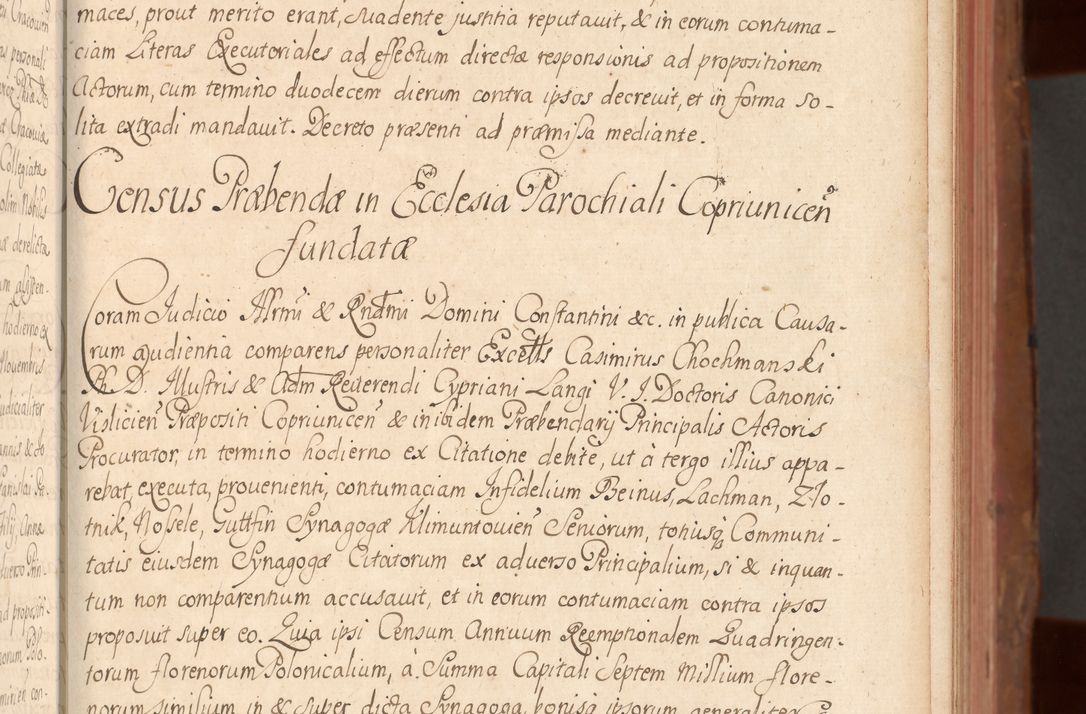 maces, prout merito erant, suadente justitia reputavit, & in eorum contuma-
ciam Literas Executoriales ad effectum directæ responsionis ad propositionem
Actorum, cum termino duodecem dierum contra ipsos decrevit, et in forma so-
lita extradi mandavit. Decreto præsenti ad præmissa mediante.
Census Præbendæ in Ecclesia Parochiali Copriunicen̄
fundatæ
Coram Iudicio Illrmi & Rndmi Domini Constantini &c. in publica Causa-
rum audientia comparens personaliter Excell̄s Casimirus Chochmanski
Ph. D. Illustris & Adm̄ Reverendi Cypriani Langi V. I. Doctoris Canonici
Vislicien̄ Præpositi Copriunicen̄ & in ibidem Præbendarij Principalis Actoris
Procurator, in termino hodierno ex Citatione debite, ut à tergo illius appa-
rebat, executa, provenienti, contumaciam Infidelium Beinus, Lachman, Zlo-
tnik, Nossele, Guttfin Synagogæ Klimuntovien̄ Seniorum, totiusq̃ Communi-
tatis eiusdem Synagogæ Citatorum ex adverso Principalium, si & inquan-
tum non comparentium accusavit, et in eorum contumaciam contra ipsos
proposuit super eo. Quia ipsi Censum Annuum Reemptionalem Quadringen-
torum florenorum Polonicalium, à Summa Capitali Septem Millium flore-
norum similium in & super dicta Synagoga, bonisq̃ ipsorum generaliter
Cracovien
personali
Cracoviæ
Collegiata
olim Nobilis
derelictæ
hodierno ex
Novembris
udicialiter
annis & do
Anna
adverso Prin-
ad propositi-
eorum Solo